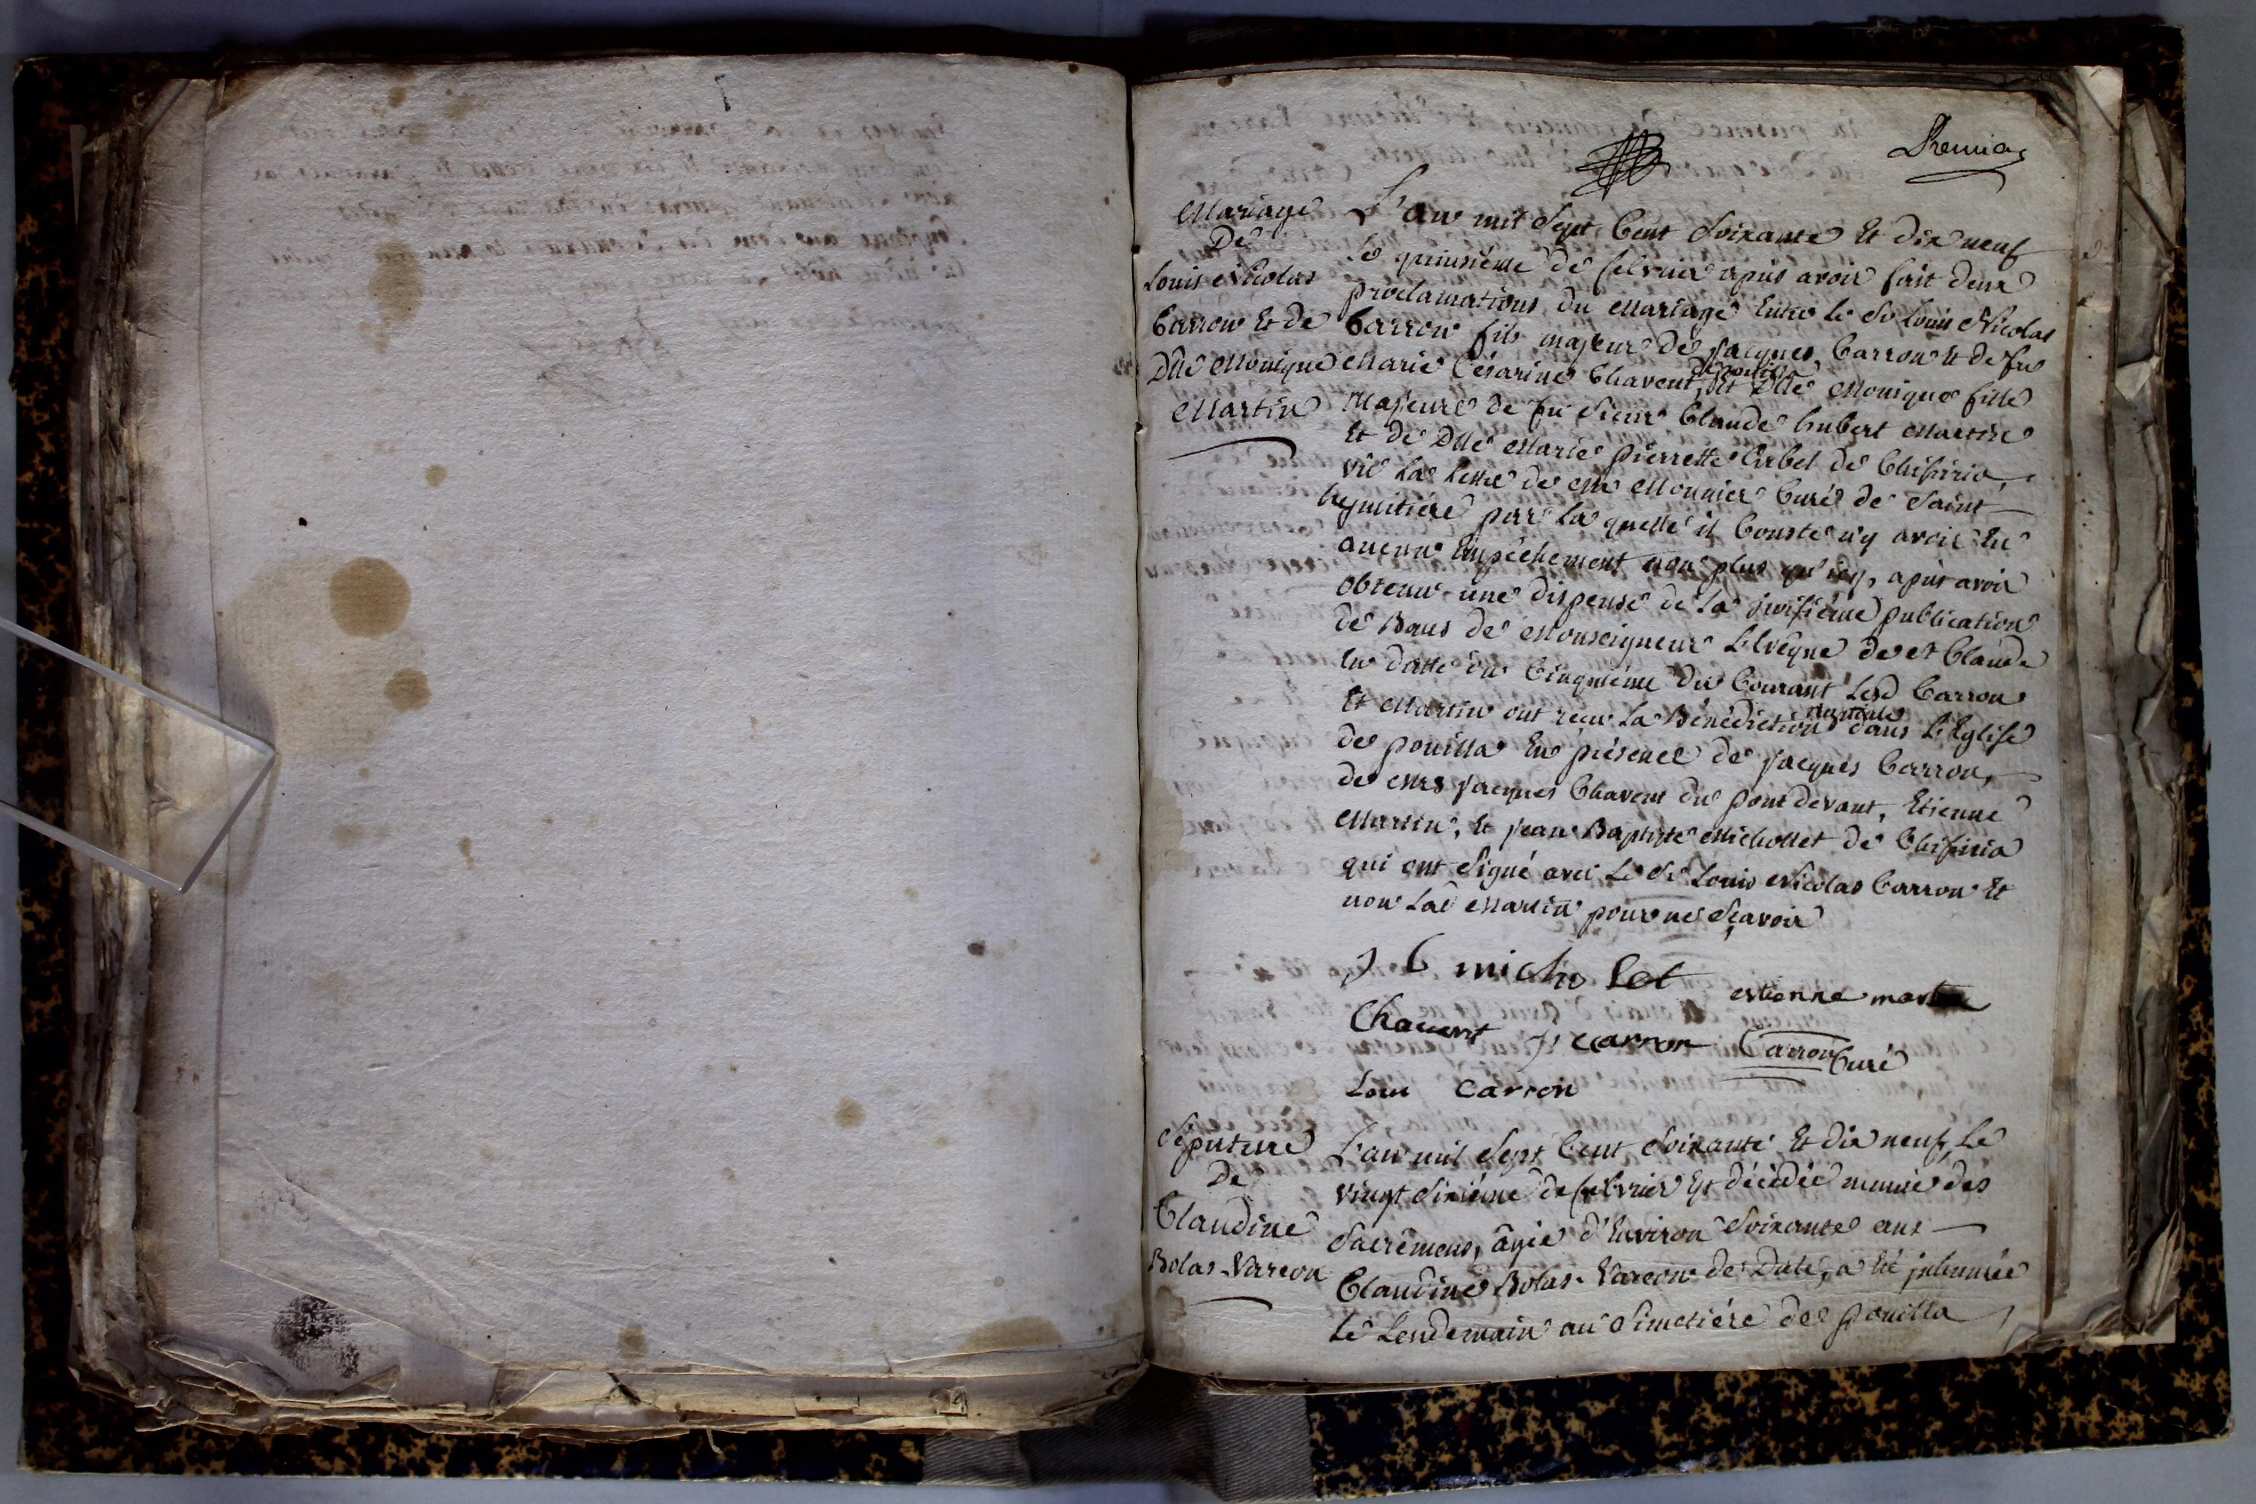 Premier
Mariage
De
Louis Nicolas
Carron Et de
Dlle Monique
Martin
L'an mil Sept Cent Soixante Et dix neuf
le quinsiéme de febvrier après avoir fait deux
proclamations du Mariage Entre le Sr Louis Nicolas
Carron fils majeur de Jacques Carron Et de fue
Marie Césarine Chavent, de pouilla Et Dlle Monique fille
Majeure de fu Sieur Claude hubert Martin
Et de Dlle Marie pierrette Girbel de Chisiria,
vû la lettre de Mr Monnier Curé de Saint
hymitiere par la quelle il Conste n'y avoir Eu
aucun Empêchement non plus qu'icy, après avoir
obtenu une dispense de la troisiéme publication
de Bans de Monseigneur L'Evêque de St Claude
En datte du Cinquiéme du Courant Lesd Carron
Et Martin ont reçu La Bénédiction nuptiale dans L'Eglise
de pouilla En présence de Jacques Carron,
de Mrs Jacques Chavent du pont devant, Etienne
Martin, Et Jean Baptiste Michollet de Chisiria
qui ont Signé avec Le Sr Louis Nicolas Carron Et
non Lad Martin pour ne Sçavoir
J B micholet
estienne martin
Chavent J carron Carron Curé
Loui carron
Sépulture
De
Claudine
Bolas-Vareon
L'an mil Sept Cent Soixante Et dix neuf, Le
vingt Sixiéme de febvrier Est décédée munie des
Sacrémens, âgée d'Environ Soixante ans
Claudine Bolas-Vareon de a Eté inhumée
Le Lendemain au Simetiére de pouilla